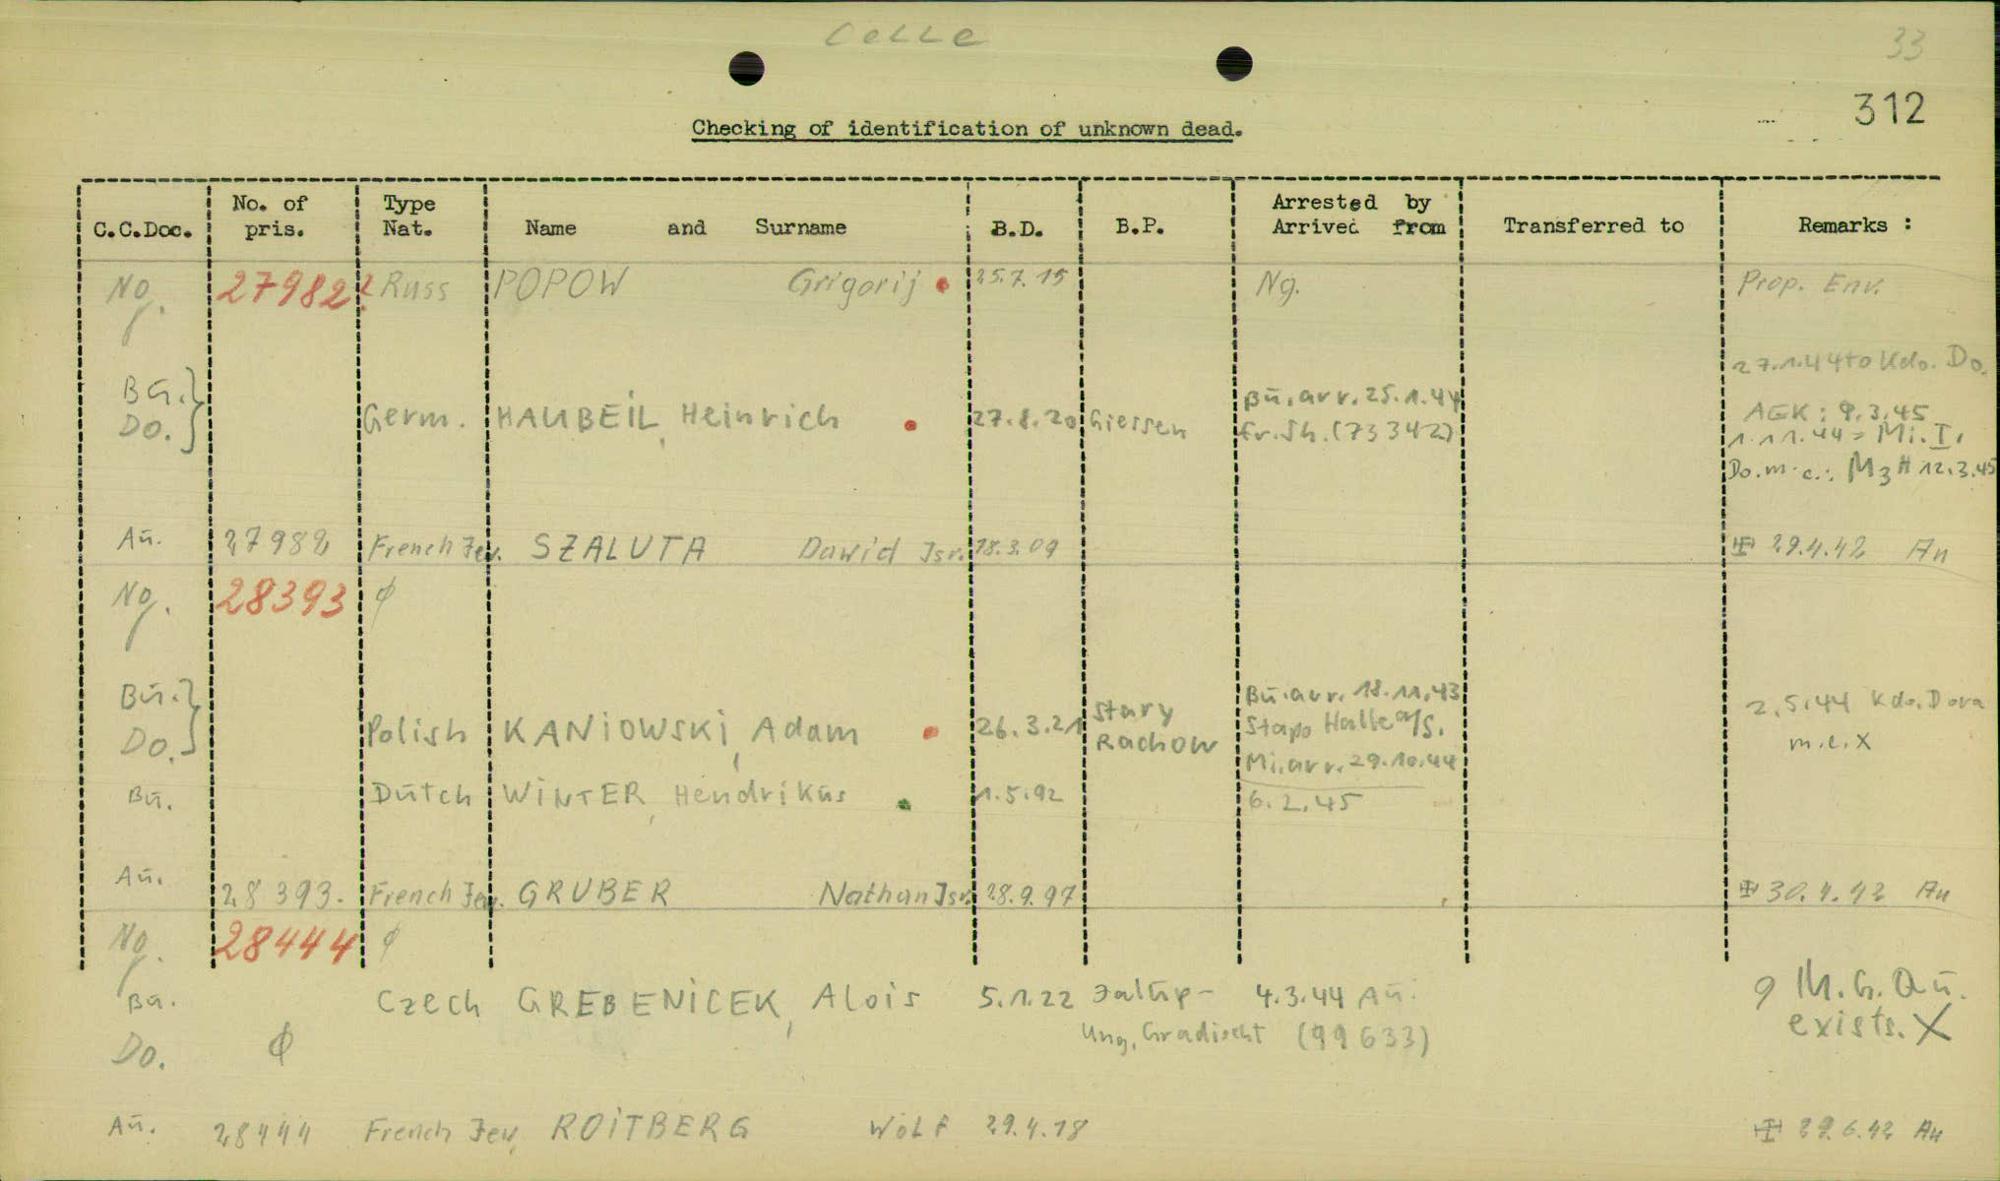 Celle
33
312
Checking of identification of unknown dead.
C.C.Doc. No. of pris. Type Nat. Name and Surname B.D. B.P. Arrested by Arrived from Transferred to Remarks :
Ng. 27982 Russ POPOW Grigorij 25.7.15 Ng. Prop. Env.
27.1.44 to Kdo. Do.
Bū. Bū. arr. 25.1.44 AEK: 9.3.45
Do. Germ. HAUBEIL, Heinrich 27.8.20 Giessen fr. Sh. (73342) 1.11.44 = Mi. I.
Do. m. c.: M3 # 12.3.45
Aū. 27982 French Jew. SZALUTA Dawid Isr. 18.3.09 29.4.42 Au
Ng. 28393 ϕ
Bū. Stary Bū. arr. 18.11.43 2.5.44 Kdo. Dora
Do. Polish KANIOWSKI, Adam 26.3.21 Rachow Stapo Halle a/S. m.c. X
Mi. arr. 29.10.44
Bū. Dutch WINTER, Hendrikūs 1.5.92 6.2.45
Aū. 28393. French Jew. GRUBER Nathan Isr. 28.9.97 30.4.42 Au
Ng. 28444 ϕ
Bū. Czech GREBENICEK, Alois 5.1.22 Jalūp- 4.3.44 Aū. M.G. Aū.
Ung. Gradischt (99633) exists. X
Do. ϕ
Aū. 28444 French Jew ROITBERG Wolf 29.4.18 29.6.42 Au